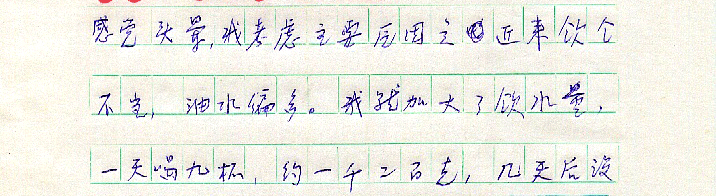 感觉头晕,我考虑主要原因之①近来饮食
不当,油水偏多。我就加大了饮水量,
一天喝九杯,约一千二百克,几天后没